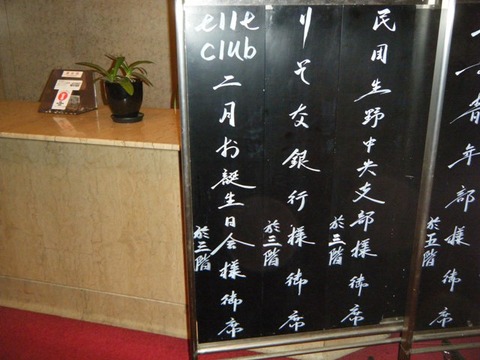 青年部様 御席
於五階
民団生野中央支部様 御席
於三階
りそな銀行様 御席
於三階
elle club 二月お誕生日会様 御席
於三階